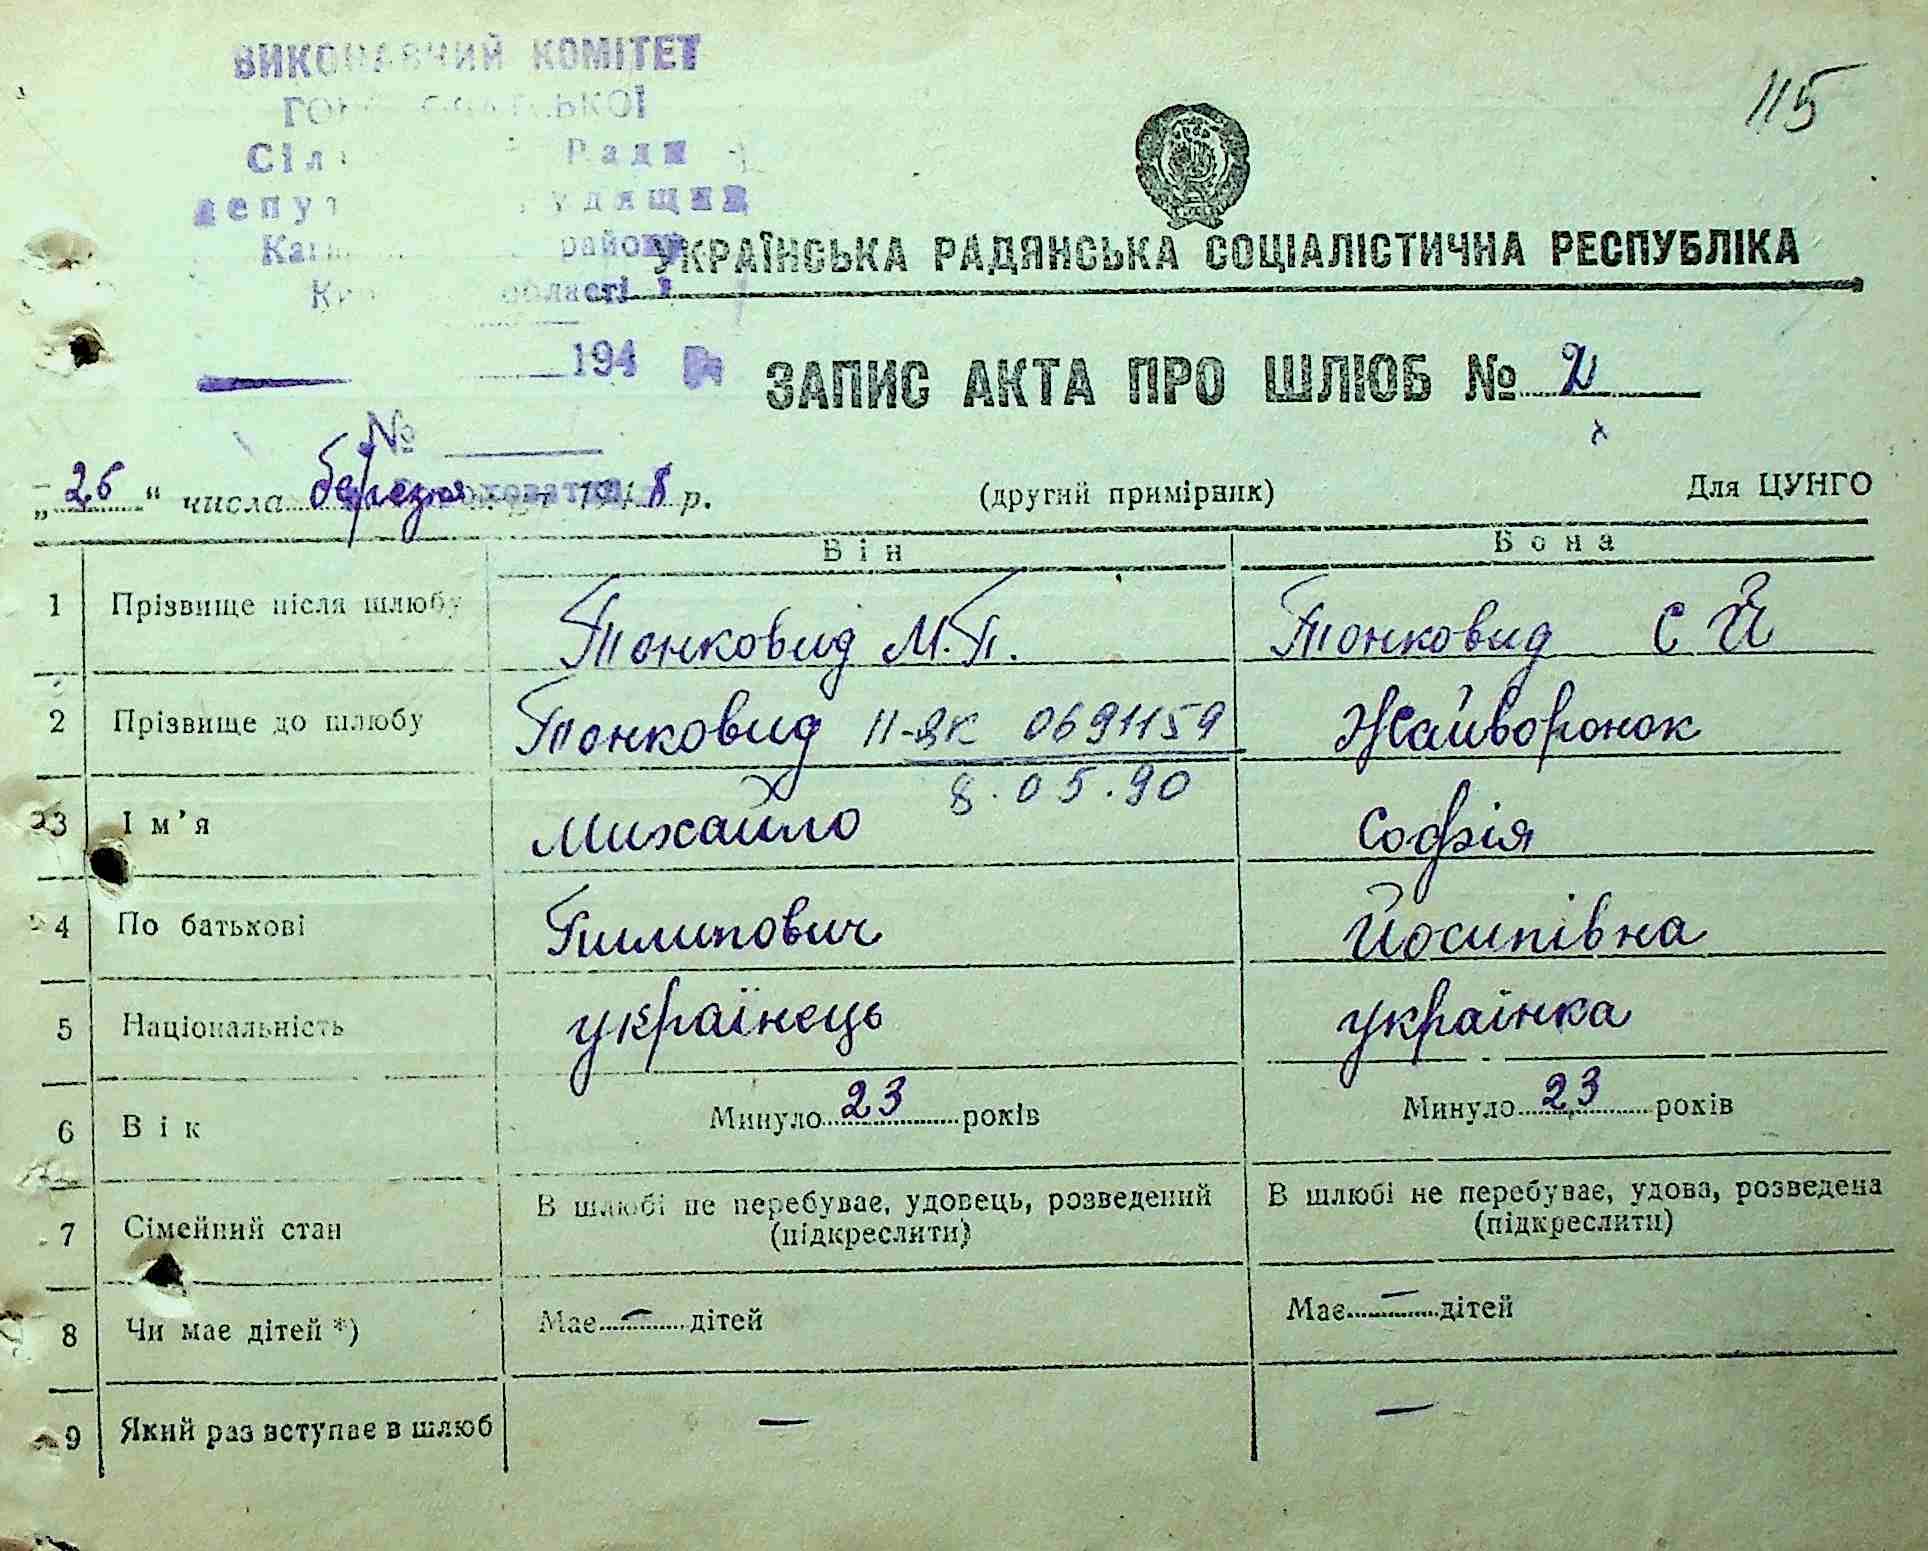 115
ВИКОНАВЧИЙ КОМІТЕТ
Ради
району
області
УКРАЇНСЬКА РАДЯНСЬКА СОЦІАЛІСТИЧНА РЕСПУБЛІКА
194
ЗАПИС АКТА ПРО ШЛЮБ № 2
№
„26“ числа березня 1948 р. (другий примірник) Для ЦУНГО
Він Вона
1 Прізвище після шлюбу Тонковид М.П. Тонковид С Й
2 Прізвище до шлюбу Тонковид II-ЯК 0691159 Жайворонок
8.05.90
3 Ім'я Михайло Софія
4 По батькові Пилипович Йосипівна
5 Національність українець українка
6 Вік Минуло 23 років Минуло 23 років
7 Сімейний стан В шлюбі не перебуває, удовець, розведений (підкреслити) В шлюбі не перебуває, удова, розведена (підкреслити)
8 Чи має дітей *) Має – дітей Має – дітей
9 Який раз вступає в шлюб – –